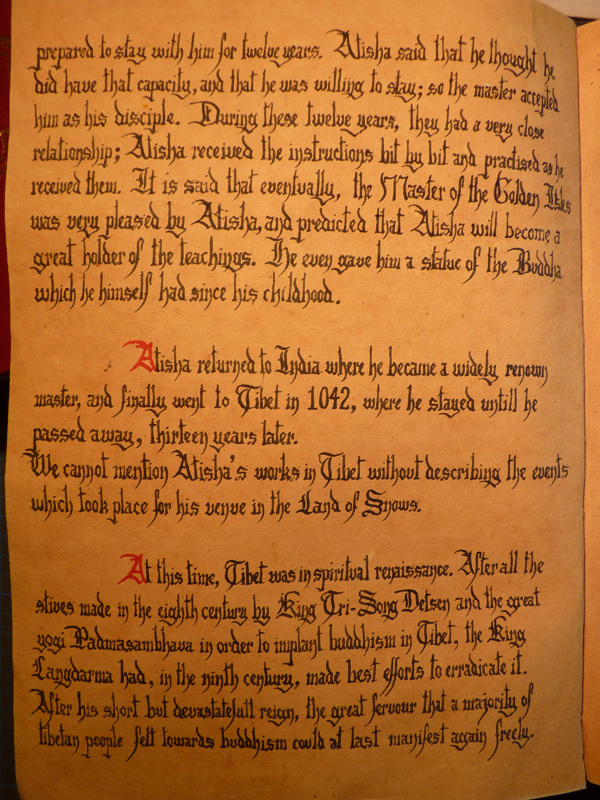 prepared to stay with him for twelve years. Atisha said that he thought he
did have that capacity, and that he was willing to stay; so the master accepted
him as his disciple. During these twelve years, they had a very close
relationship; Atisha received the instructions bit by bit and practised as he
received them. It is said that eventually, the Master of the Golden Isles
was very pleased by Atisha, and predicted that Atisha will become a
great holder of the teachings. He even gave him a statue of the Buddha
which he himself had since his childhood.
Atisha returned to India where he became a widely renown
master, and finally went to Tibet in 1042, where he stayed untill he
passed away, thirteen years later.
We cannot mention Atisha's works in Tibet without describing the events
which took place for his venue in the Land of Snows.
At this time, Tibet was in spiritual renaissance. After all the
stives made in the eighth century by King Tri-Song Detsen and the great
yogi Padmasambhava in order to implant buddhism in Tibet, the King
Langdarma had, in the ninth century, made best efforts to erradicate it.
After his short but devastatefull reign, the great fervour that a majority of
tibetan people felt towards buddhism could at last manifest again freely.